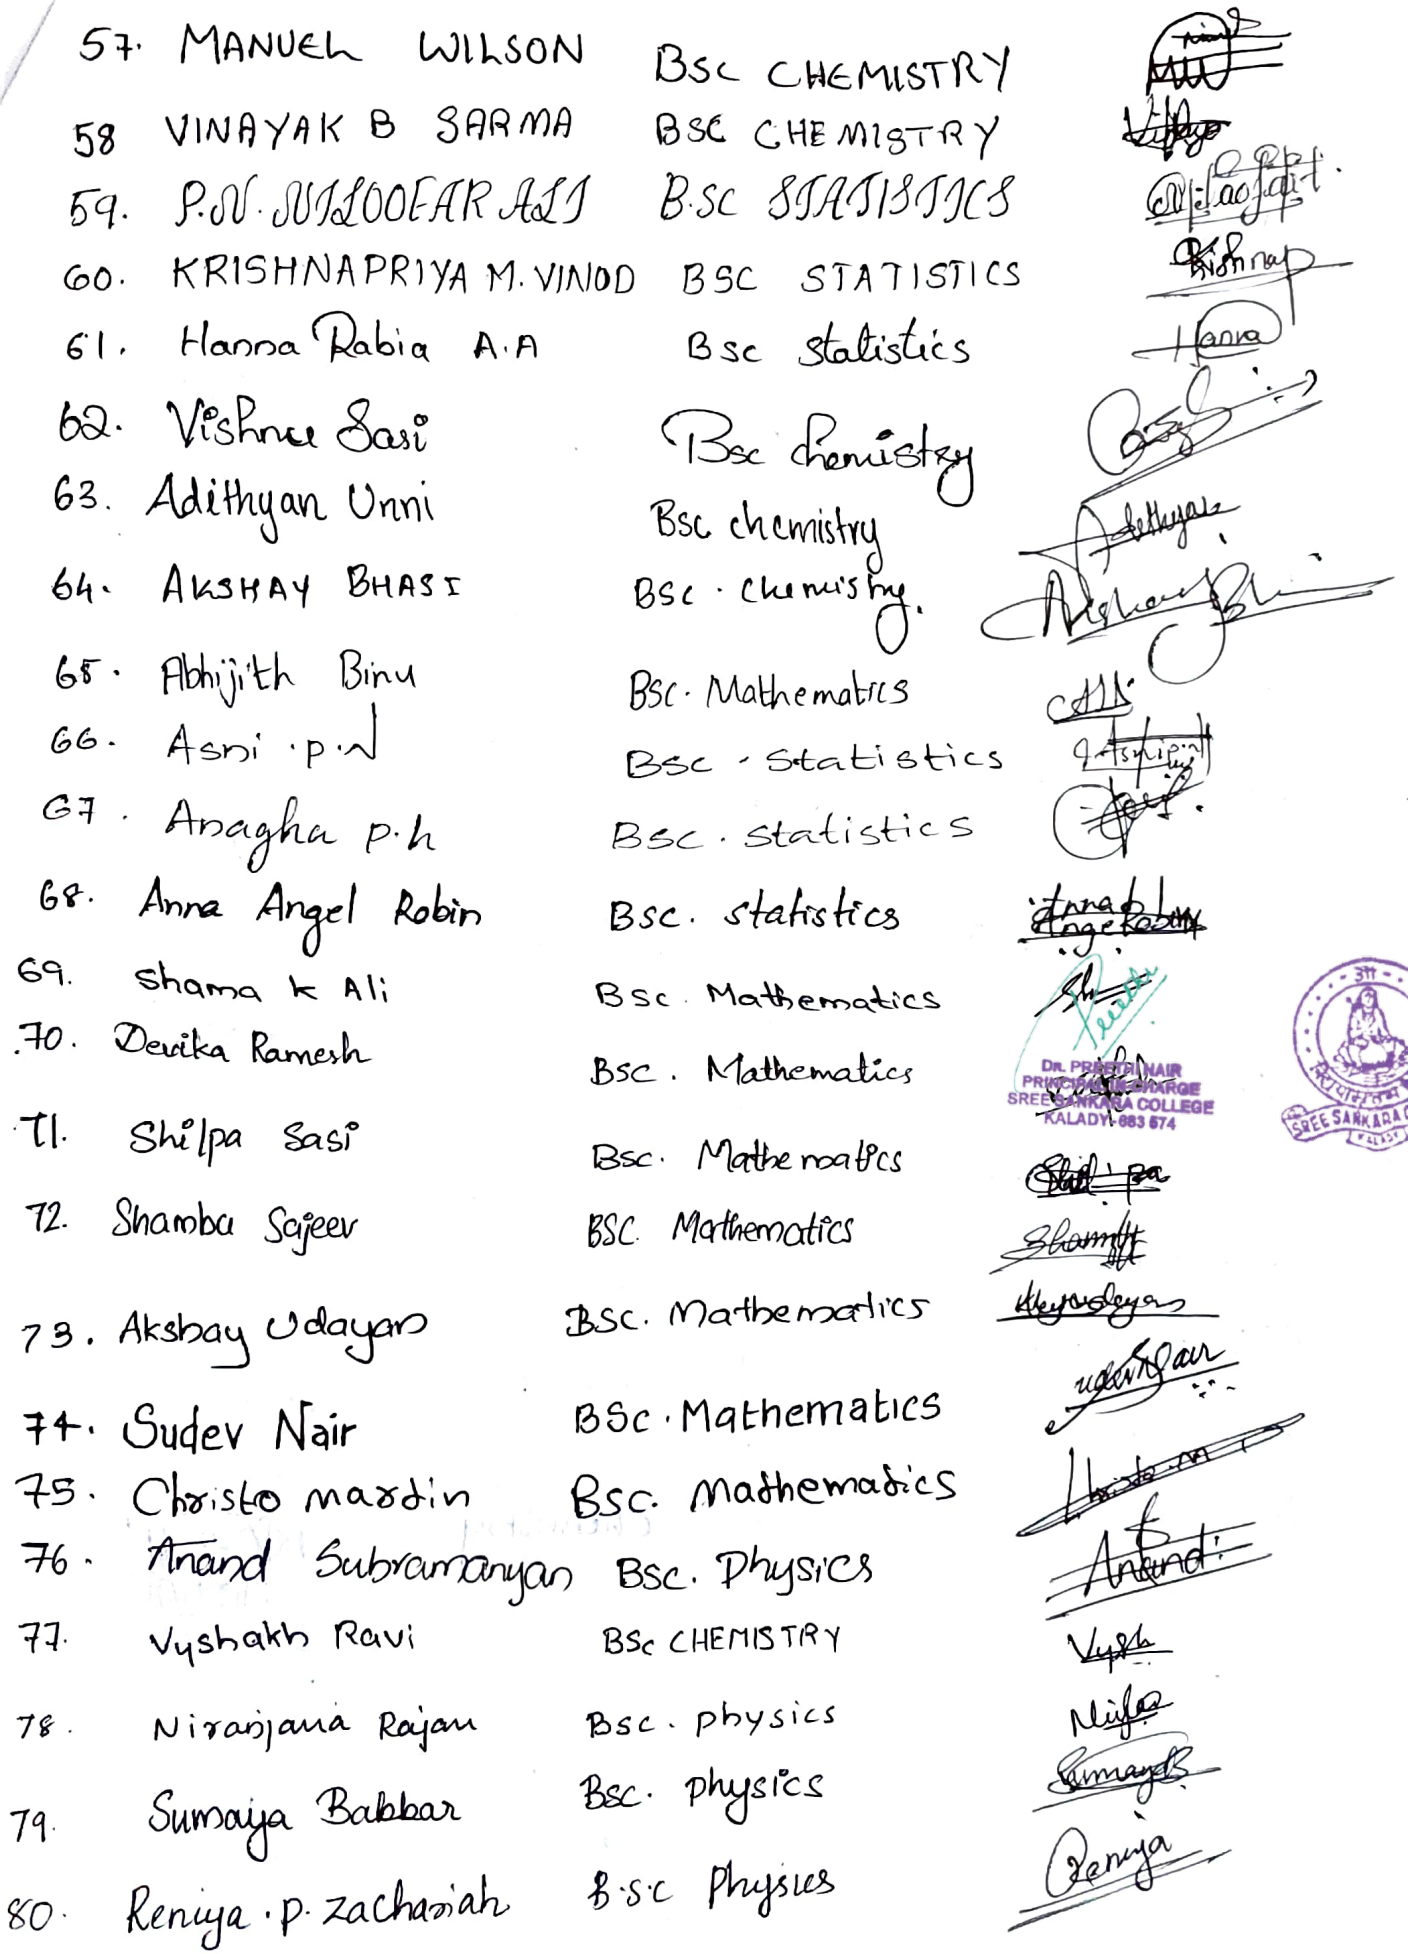 57. MANUEL WILSON BSC CHEMISTRY
58 VINAYAK B SARMA BSC CHEMISTRY
59. P.N. NILOOFAR ALI B.SC STATISTICS
60. KRISHNAPRIYA M. VINOD BSC STATISTICS Krishnap
61. Hanna Rabia A.A Bsc statistics Hanna
62. Vishnu Sasi Bsc chemistry
63. Adithyan Unni Bsc chemistry Adithyan
64. AKSHAY BHASI BSC. Chemistry.
65. Abhijith Binu BSC. Mathematics
66. Asni .p.N Bsc. Statistics
67. Anagha p.h BSC. statistics
68. Anna Angel Robin BSC. statistics Anna Angel Robin
69. Shama K Ali Bsc. Mathematics Sh
Preethi
70. Devika Ramesh Bsc. Mathematics
DR. PREETHI NAIR
PRINCIPAL IN CHARGE
SREE SANKARA COLLEGE
KALADY-683 574
SREE SANKARA
71. Shilpa Sasi Bsc. Mathematics Shilpa
72. Shamba Sajeev BSC. Mathematics
73. Akshay Udayan BSC. Mathematics
74. Sudev Nair BSc. Mathematics
75. Christo martin Bsc. Mathematics
76. Anand Subramanyan BSC. Physics Anand
77. Vyshakh Ravi BSc CHEMISTRY Vysh
78. Niranjana Rajan Bsc. physics
79. Sumaiya Babbar Bsc. physics
80. Reniya .p. zachariah B.S.C Physics Reniya